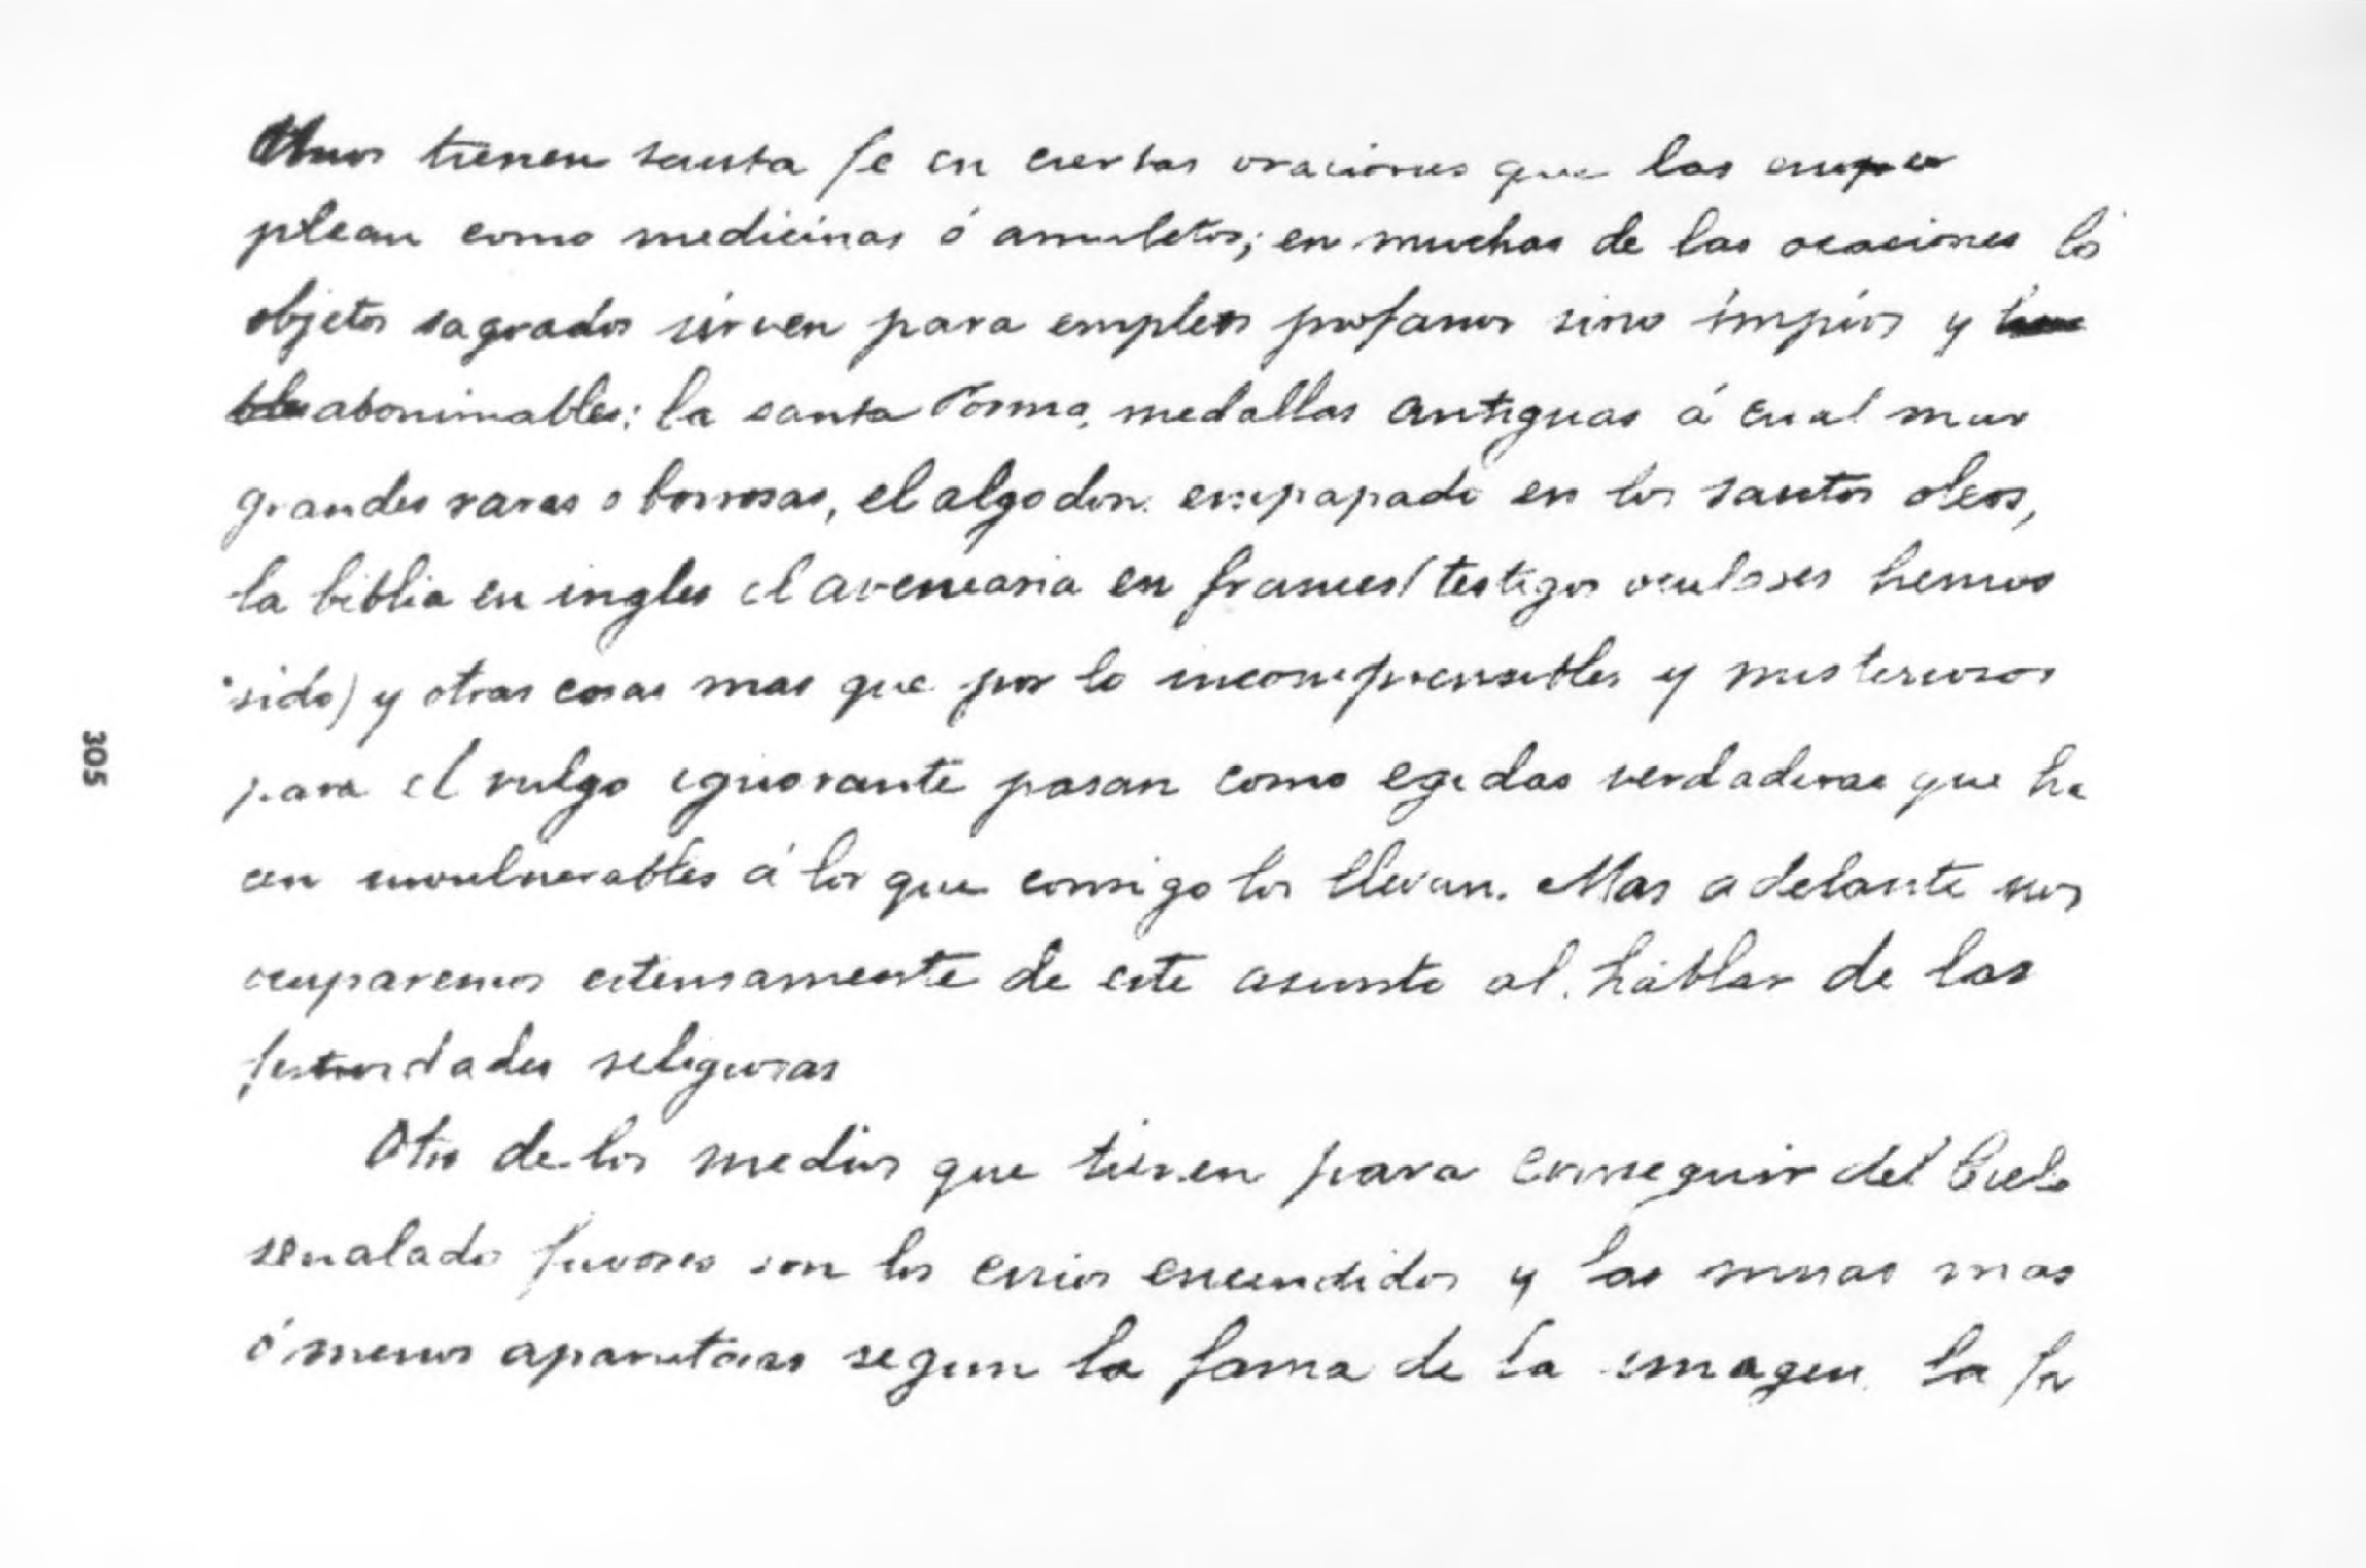 Unos tienen santa fe en ciertas oraciones que las em
plean como medicinas ó amuletos; en muchas de las ocasiones los
objetos sagrados sirven para empleos profanos sino impios y
abominables: la santa Forma, medallas antiguas á cual mas
grandes raras o borrosas, el algodon empapado en los santos oleos,
la biblia en ingles el avemaria en frances (testigos oculares hemos
sido) y otras cosas mas que por lo incomprensibles y misteriosos
para el vulgo ignorante pasan como egidas verdaderas que ha
cen invulnerables á los que consigo los llevan. Mas adelante nos
ocuparemos estensamente de este asunto al hablar de las
religiosas
Otro de los medios que tienen para conseguir del Cielo
senalado favores son los cirios encendidos y las misas mas
ó menos aparatosas segun la fama de la imagen. la
305